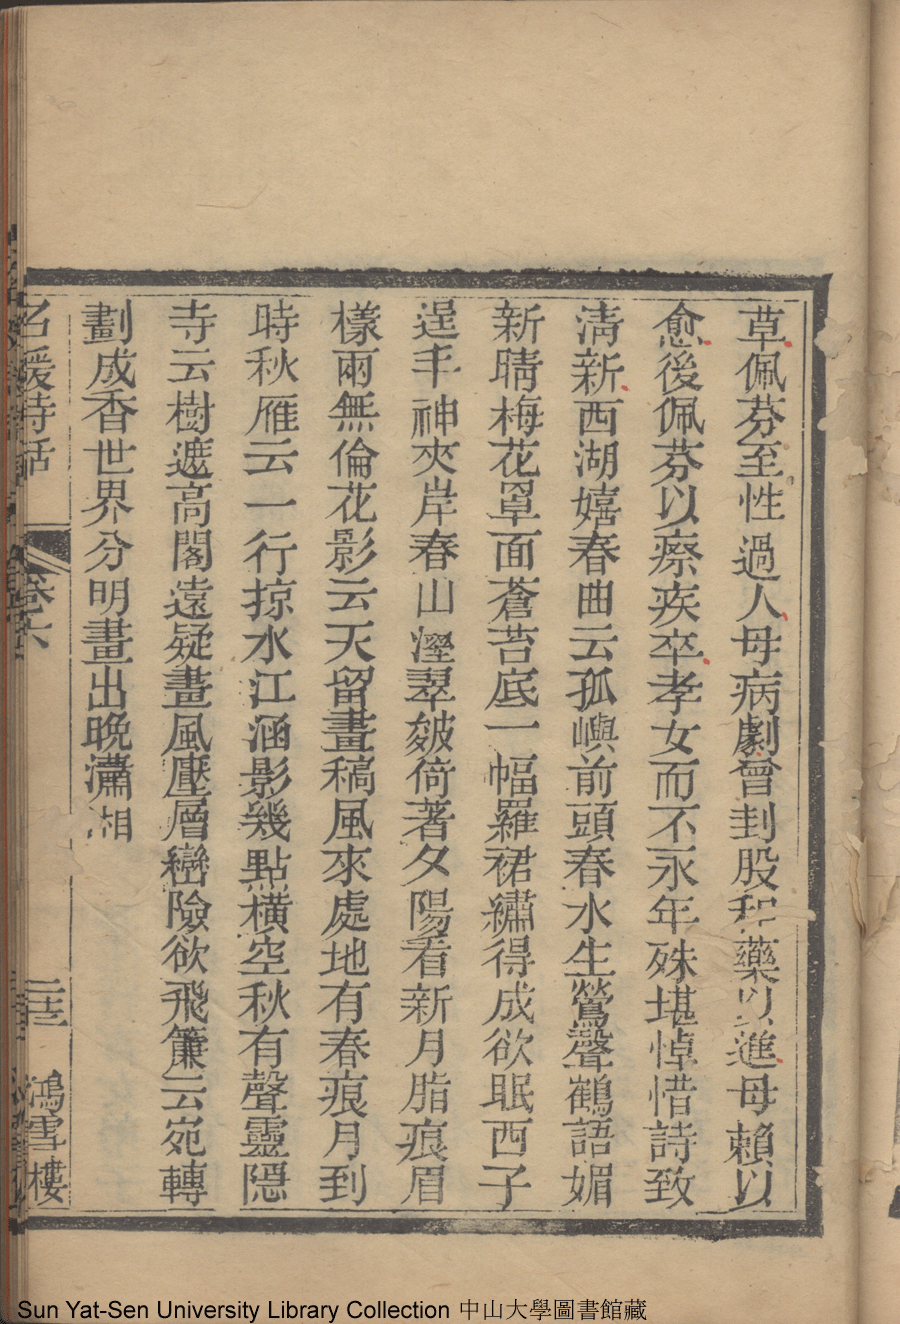 草佩芬至性過人母病劇曾刲股和藥以進母賴以
愈後佩芬以瘵疾卒孝女而不永年殊堪悼惜詩致
清新西湖嬉春曲云孤嶼前頭春水生鶯聲鶴語媚
新晴梅花罩面蒼苔底一幅羅裙繡得成欲眠西子
逞丰神夾岸春山溼翠皴倚著夕陽看新月脂痕眉
樣兩無倫花影云天留畫稿風來處地有春痕月到
時秋雁云一行掠水江涵影幾點橫空秋有聲靈隱
寺云樹遮高閣遠疑畫風壓層巒險欲飛簾云宛轉
劃成香世界分明畫出晚瀟湘
名媛詩話 卷六 二十三 鴻雪樓
Sun Yat-Sen University Library Collection 中山大學圖書館藏